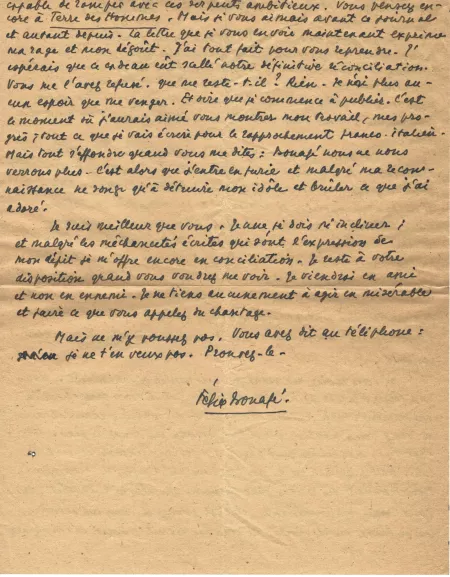 capable de rompre avec ces serpents ambitieux. Vous pensez en-
core à Terre des Hommes. Mais je vous aimais avant ce journal
et autant depuis. La lettre que je vous envoie maintenant exprime
ma rage et mon dégoût. J'ai tout fait pour vous reprendre. J'
espérais que ce cadeau eût scellé notre définitive réconciliation.
Vous me l'avez refusé. Que me reste-t-il ? Rien. Je n'ai plus au-
cun espoir que me venger. Et dire que je commence à publier. C'est
le moment où j'aurais aimé vous montrer mon travail, mes pro-
grès, tout ce que je vais écrire pour le rapprochement franco-italien.
Mais tout s'effondre quand vous me dites : nous ne nous
verrons plus. C'est alors que j'entre en furie et malgré ma recon-
naissance ne songe qu'à détruire mon idole et brûler ce que j'ai
adoré.
Je suis meilleur que vous. Jeune, je dois m'incliner ;
et malgré les méchancetés écrites qui sont l'expression de
mon dépit je m'offre encore en conciliation. Je reste à votre
disposition quand vous voudrez me voir. Je viendrai en ami
et non en ennemi. Je ne tiens aucunement à agir en misérable
et faire ce que vous appelez du chantage.
Mais ne m'y poussez pas. Vous avez dit au téléphone :
je ne t'en veux pas. Prouvez-le.
Félix